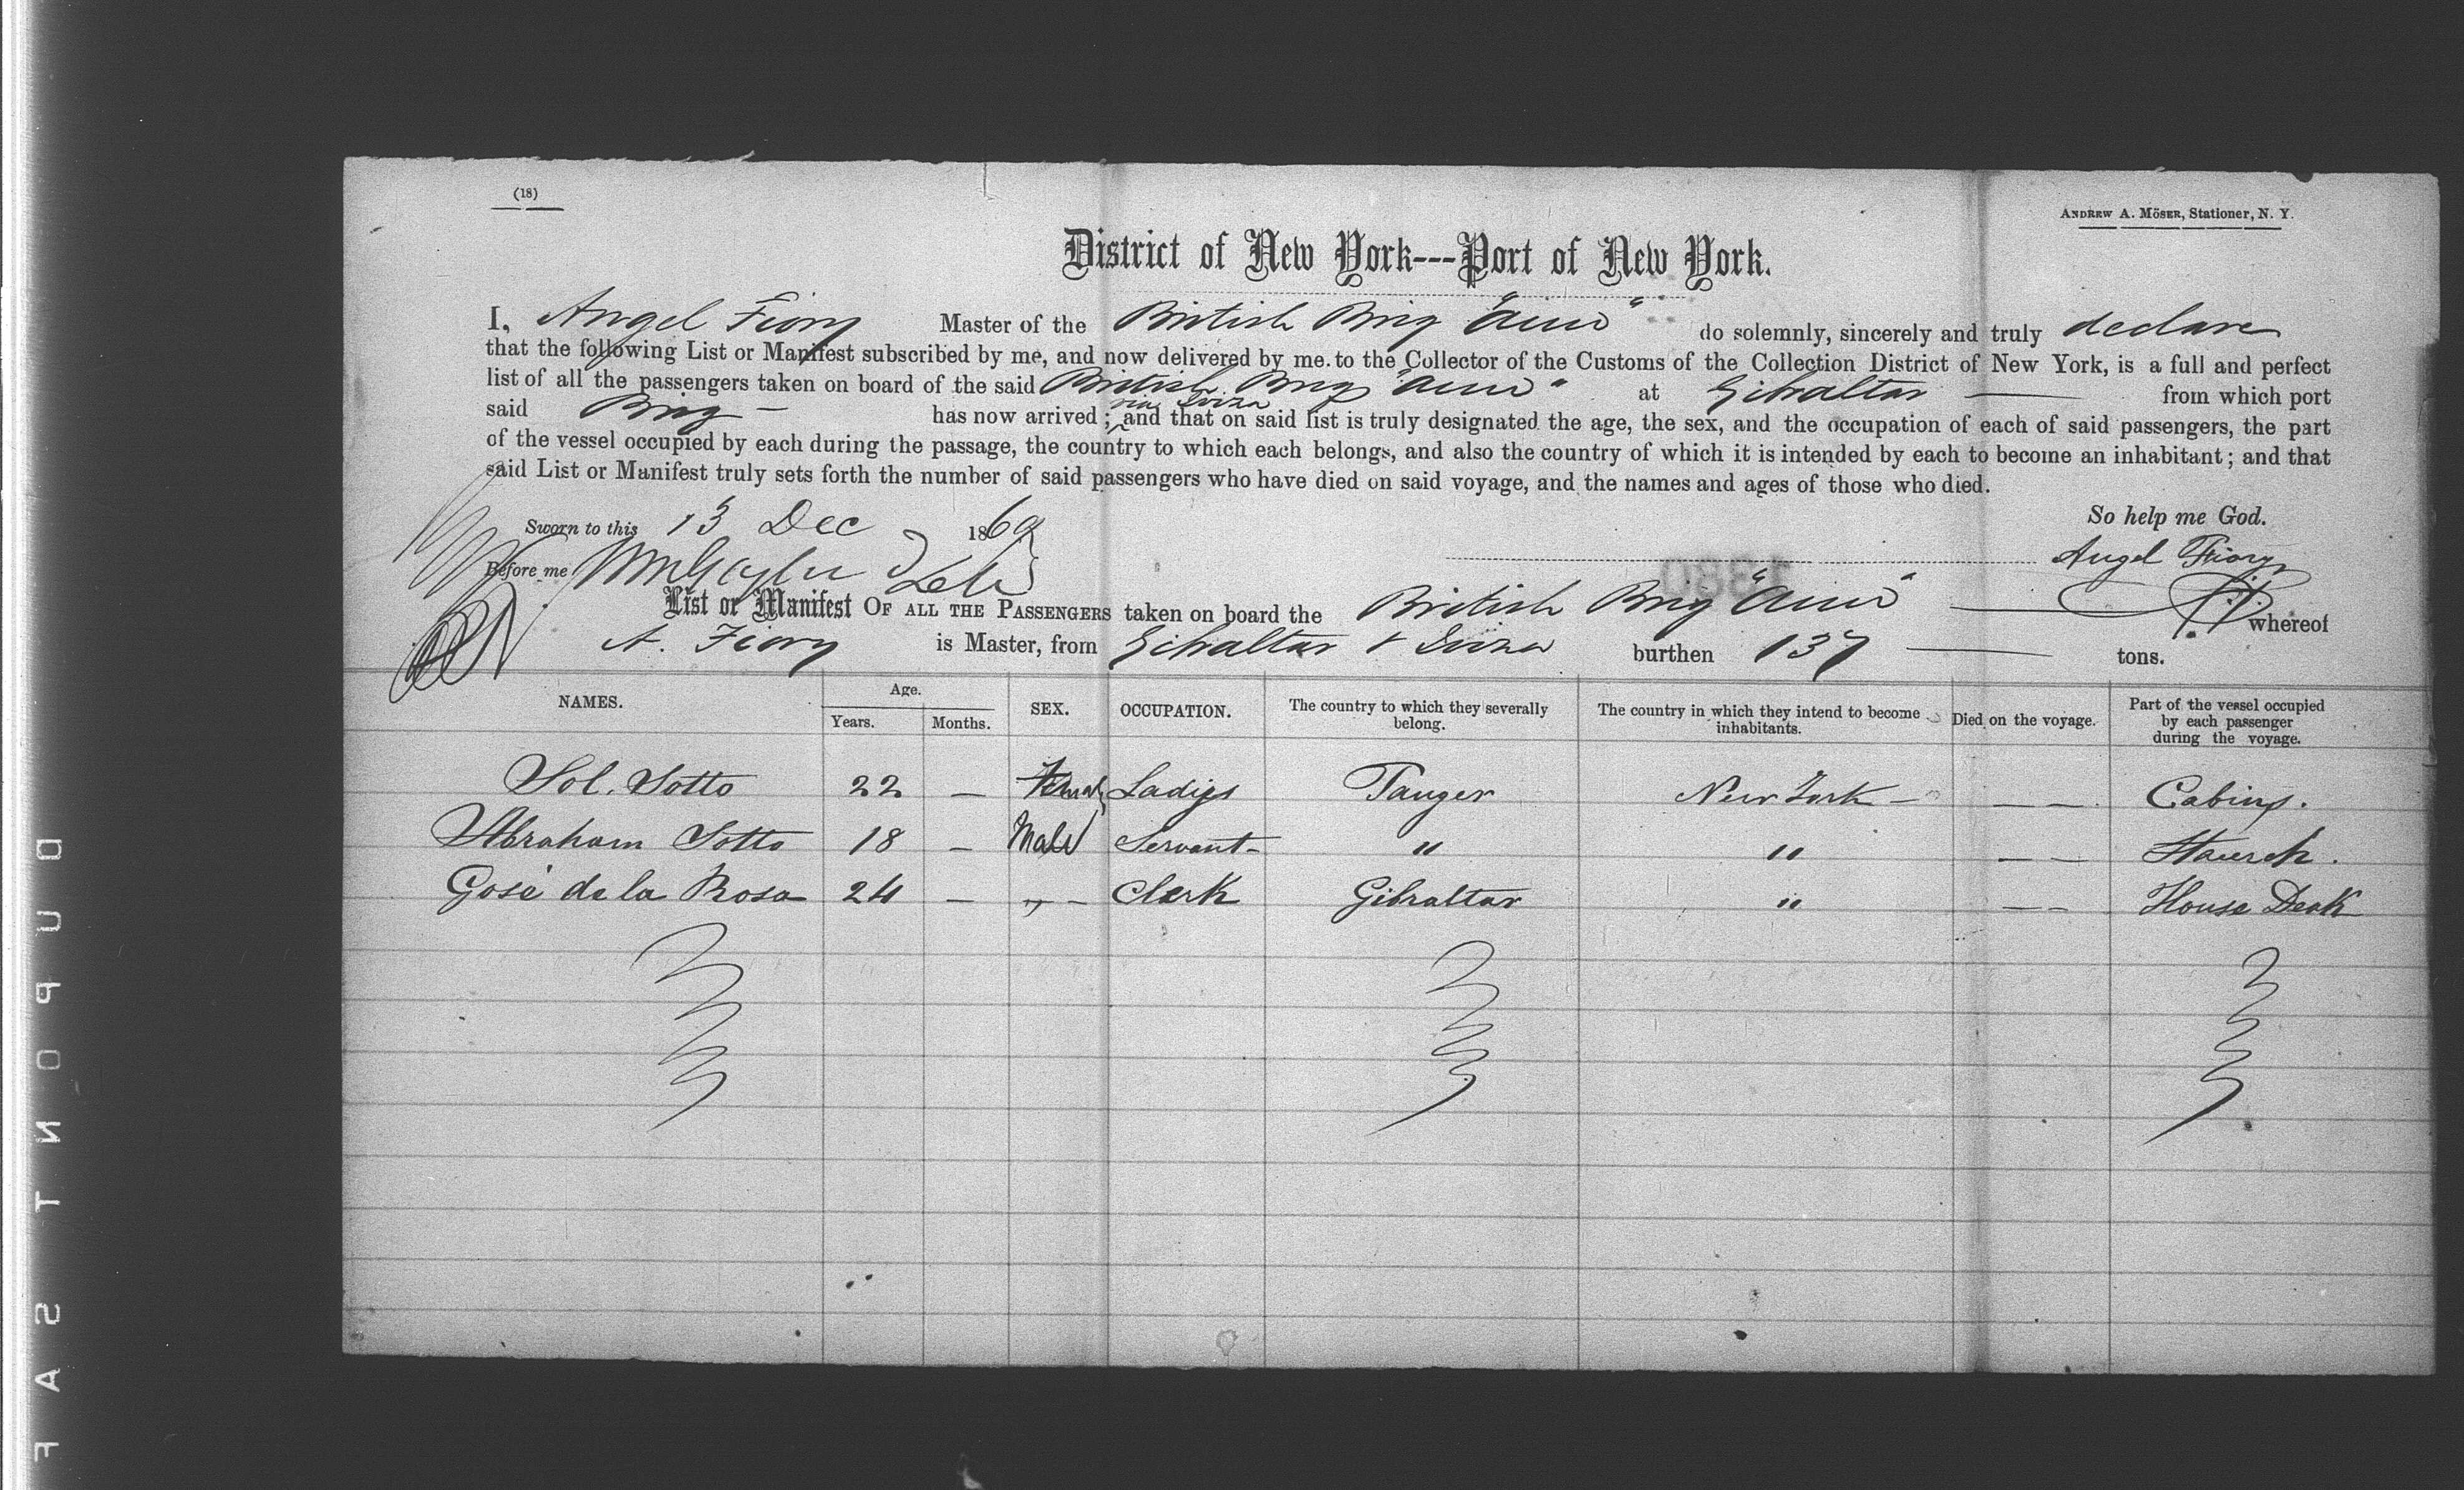 (18)
ANDREW A. MÖSER, Stationer, N. Y.
District of New York---Port of New York.
I, Angel Fiory Master of the British Brig " " do solemnly, sincerely and truly declare
that the following List or Manifest subscribed by me, and now delivered by me to the Collector of the Customs of the Collection District of New York, is a full and perfect
list of all the passengers taken on board of the said British Brig " " at Gibraltar from which port
via Iviza
said Brig — has now arrived ; and that on said list is truly designated the age, the sex, and the occupation of each of said passengers, the part
of the vessel occupied by each during the passage, the country to which each belongs, and also the country of which it is intended by each to become an inhabitant ; and that
said List or Manifest truly sets forth the number of said passengers who have died on said voyage, and the names and ages of those who died.
So help me God.
Sworn to this 13 Dec 1869
Angel Fiory
Before me
List or Manifest OF ALL THE PASSENGERS taken on board the British Brig " " whereof
A. Fiory is Master, from Gibraltar + Iviza burthen 137 tons.
NAMES. Age. Years. Months. SEX. OCCUPATION. The country to which they severally belong. The country in which they intend to become inhabitants. Died on the voyage. Part of the vessel occupied by each passenger during the voyage.
Sol. Sotto 22 — Female Ladys Tanger New York — — — Cabins.
Abraham Sotto 18 — Male Servant - " " — —
Gosé de la Rosa 24 — " - Clerk Gibraltar " — — House Deck
DUPONT SAF